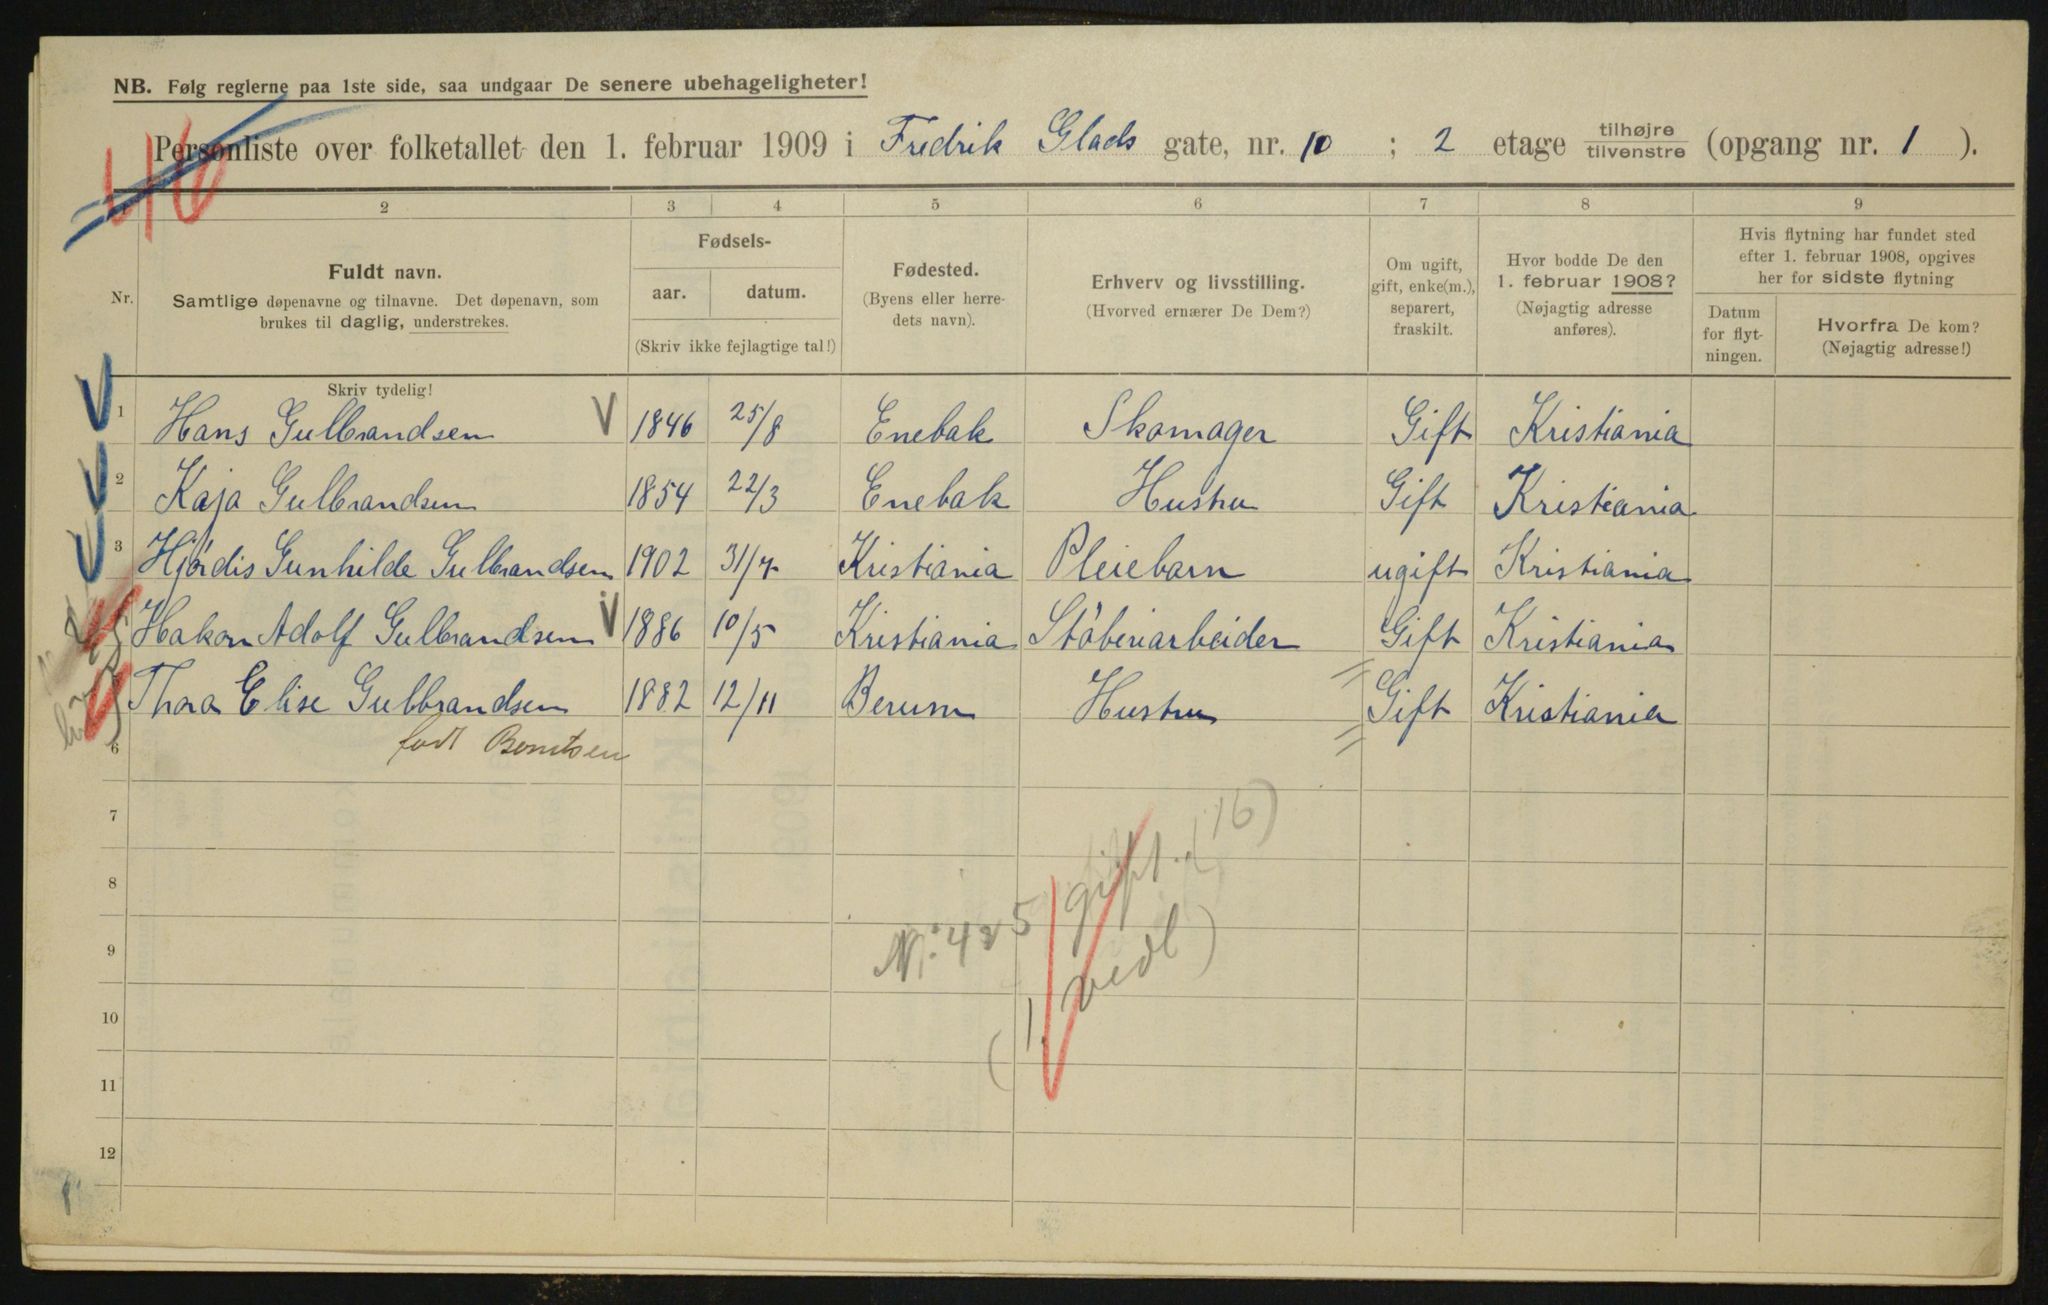 NB. Følg reglerne paa 1ste side, saa undgaar De senere ubehageligheter!
46
Personliste over folketallet den 1. februar 1909 i Fredrik Glads gate, nr. 10 ; 2 etage tilhøjre tilvenstre (opgang nr. 1 ).
2 3 4 5 6 7 8 9
Nr.
Fuldt navn.
Samtlige døpenavne og tilnavne. Det døpenavn, som
brukes til daglig, understrekes.
Skriv tydelig!
Fødsels-
aar. datum.
(Skriv ikke fejlagtige tal!)
Fødested.
(Byens eller herre-
dets navn).
Erhverv og livsstilling.
(Hvorved ernærer De Dem?)
Om ugift,
gift, enke(m.),
separert,
fraskilt.
Hvor bodde De den
1. februar 1908?
(Nøjagtig adresse
anføres).
Hvis flytning har fundet sted
efter 1. februar 1908, opgives
her for sidste flytning
Datum
for flyt-
ningen.
Hvorfra De kom?
(Nøjagtig adresse!)
1 Hans Gulbrandsen V 1846 25/8 Enebak Skomager Gift Kristiania
2 Kaja Gulbrandsen 1854 22/3 Enebak Hustru Gift Kristiania
3 Hjørdis Gunhilde Gulbrandsen 1902 31/7 Kristiania Pleiebarn ugift Kristiania
Hakon Adolf Gulbrandsen V 1886 10/5 Kristiania Stöberiarbeider Gift Kristiania
Thora Elise Gulbrandsen 1882 12/11 Berum Hustru Gift Kristiania
6 født Berntsen
7
8
9
10
11
12
Nr. 4 & 5 gift. (16)
(1 vedl)